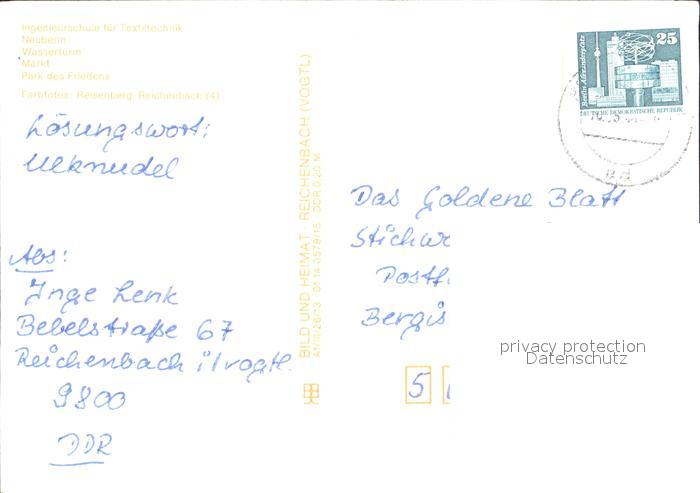 Ingenieurschule für Textiltechnik
Neuberin
Wasserturm
Markt
Park des Friedens
Farbfotos: Reisenberg, Reichenbach (4)
Lösungswort:
Ulknudel
Abs:
Inge Lenk
Bebelstraße 67
Reichenbach i/vogtl.
9800
DDR
BILD UND HEIMAT REICHENBACH (VOGTL)
A1/III/26/13 01 14 0579/15 DDR 0,20 M
25
Berlin, Alexanderplatz
DEUTSCHE DEMOKRATISCHE REPUBLIK
Das Goldene Blatt
Stichw
Postf
Bergis
5
privacy protection
Datenschutz